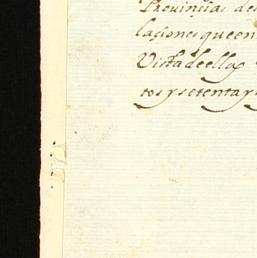 Prouinçia de
laçiones que en
Vista de ellas
tos y setenta y